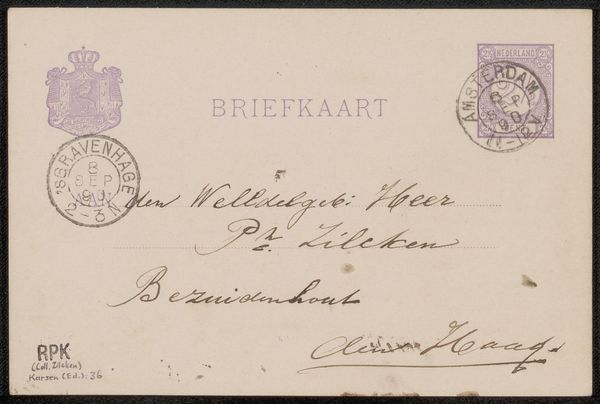 NEDERLAND
BRIEFKAART
AMSTERDAM
SEP
11-12V
'SGRAVENHAGE
8
SEP
2-3N
den Weledelgeb: Heer
Ph. Zilcken
Bezuidenhout
den Haag.
RPK
(Coll. Zilcken)
Karsen (Ed.): 36